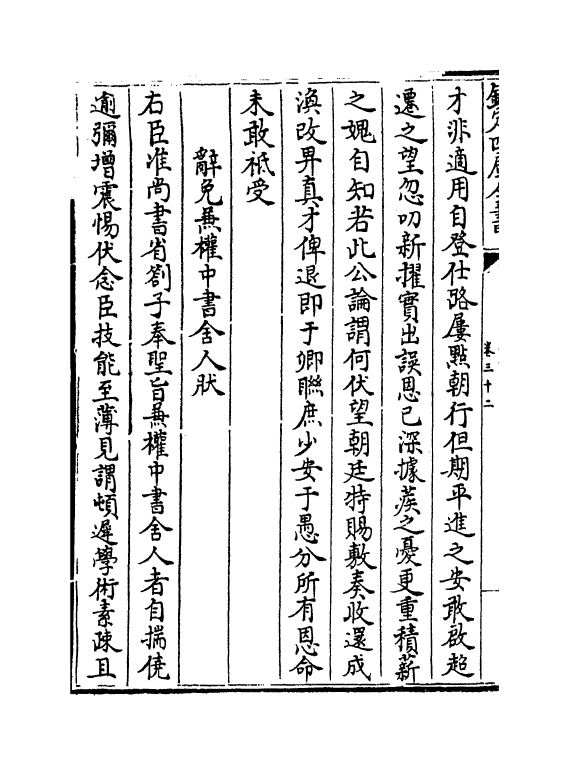 欽定四庫全書
卷三十二
才非適用自登仕路屢點朝行但期平進之安敢啟超
遷之望忽叨新擢實出誤恩已深據蒺之憂更重積薪
之媿自知若此公論謂何伏望朝廷特賜敷奏收還成
渙改畀真才俾退即于卿聯庶少安于愚分所有恩命
未敢祗受
辭免兼權中書舍人狀
右臣准尚書省劄子奉聖旨兼權中書舍人者自揣僥
逾彌增震惕伏念臣技能至薄見謂頓遲學術素疎且